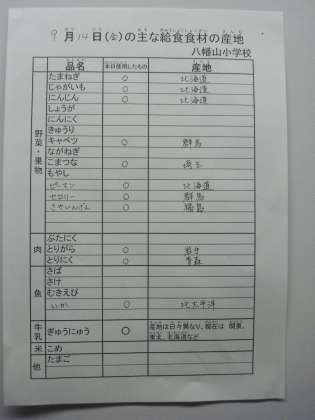 9月14日(金)の主な給食食材の産地
八幡山小学校
品名 本日使用したもの 産地
野菜・果物
たまねぎ ○ 北海道
じゃがいも ○ 北海道
にんじん ○ 北海道
しょうが
にんにく
きゅうり
キャベツ ○ 群馬
ながねぎ
こまつな ○ 埼玉
もやし
ピーマン ○ 北海道
セロリー ○ 群馬
さやいんげん ○ 福島
肉
ぶたにく
とりがら ○ 岩手
とりにく ○ 青森
魚
さば
さけ
むきえび
いか ○ 北太平洋
牛乳 ぎゅうにゅう ○ 産地は日々異なり、現在は 関東、
東北、北海道など
米 こめ
他 たまご